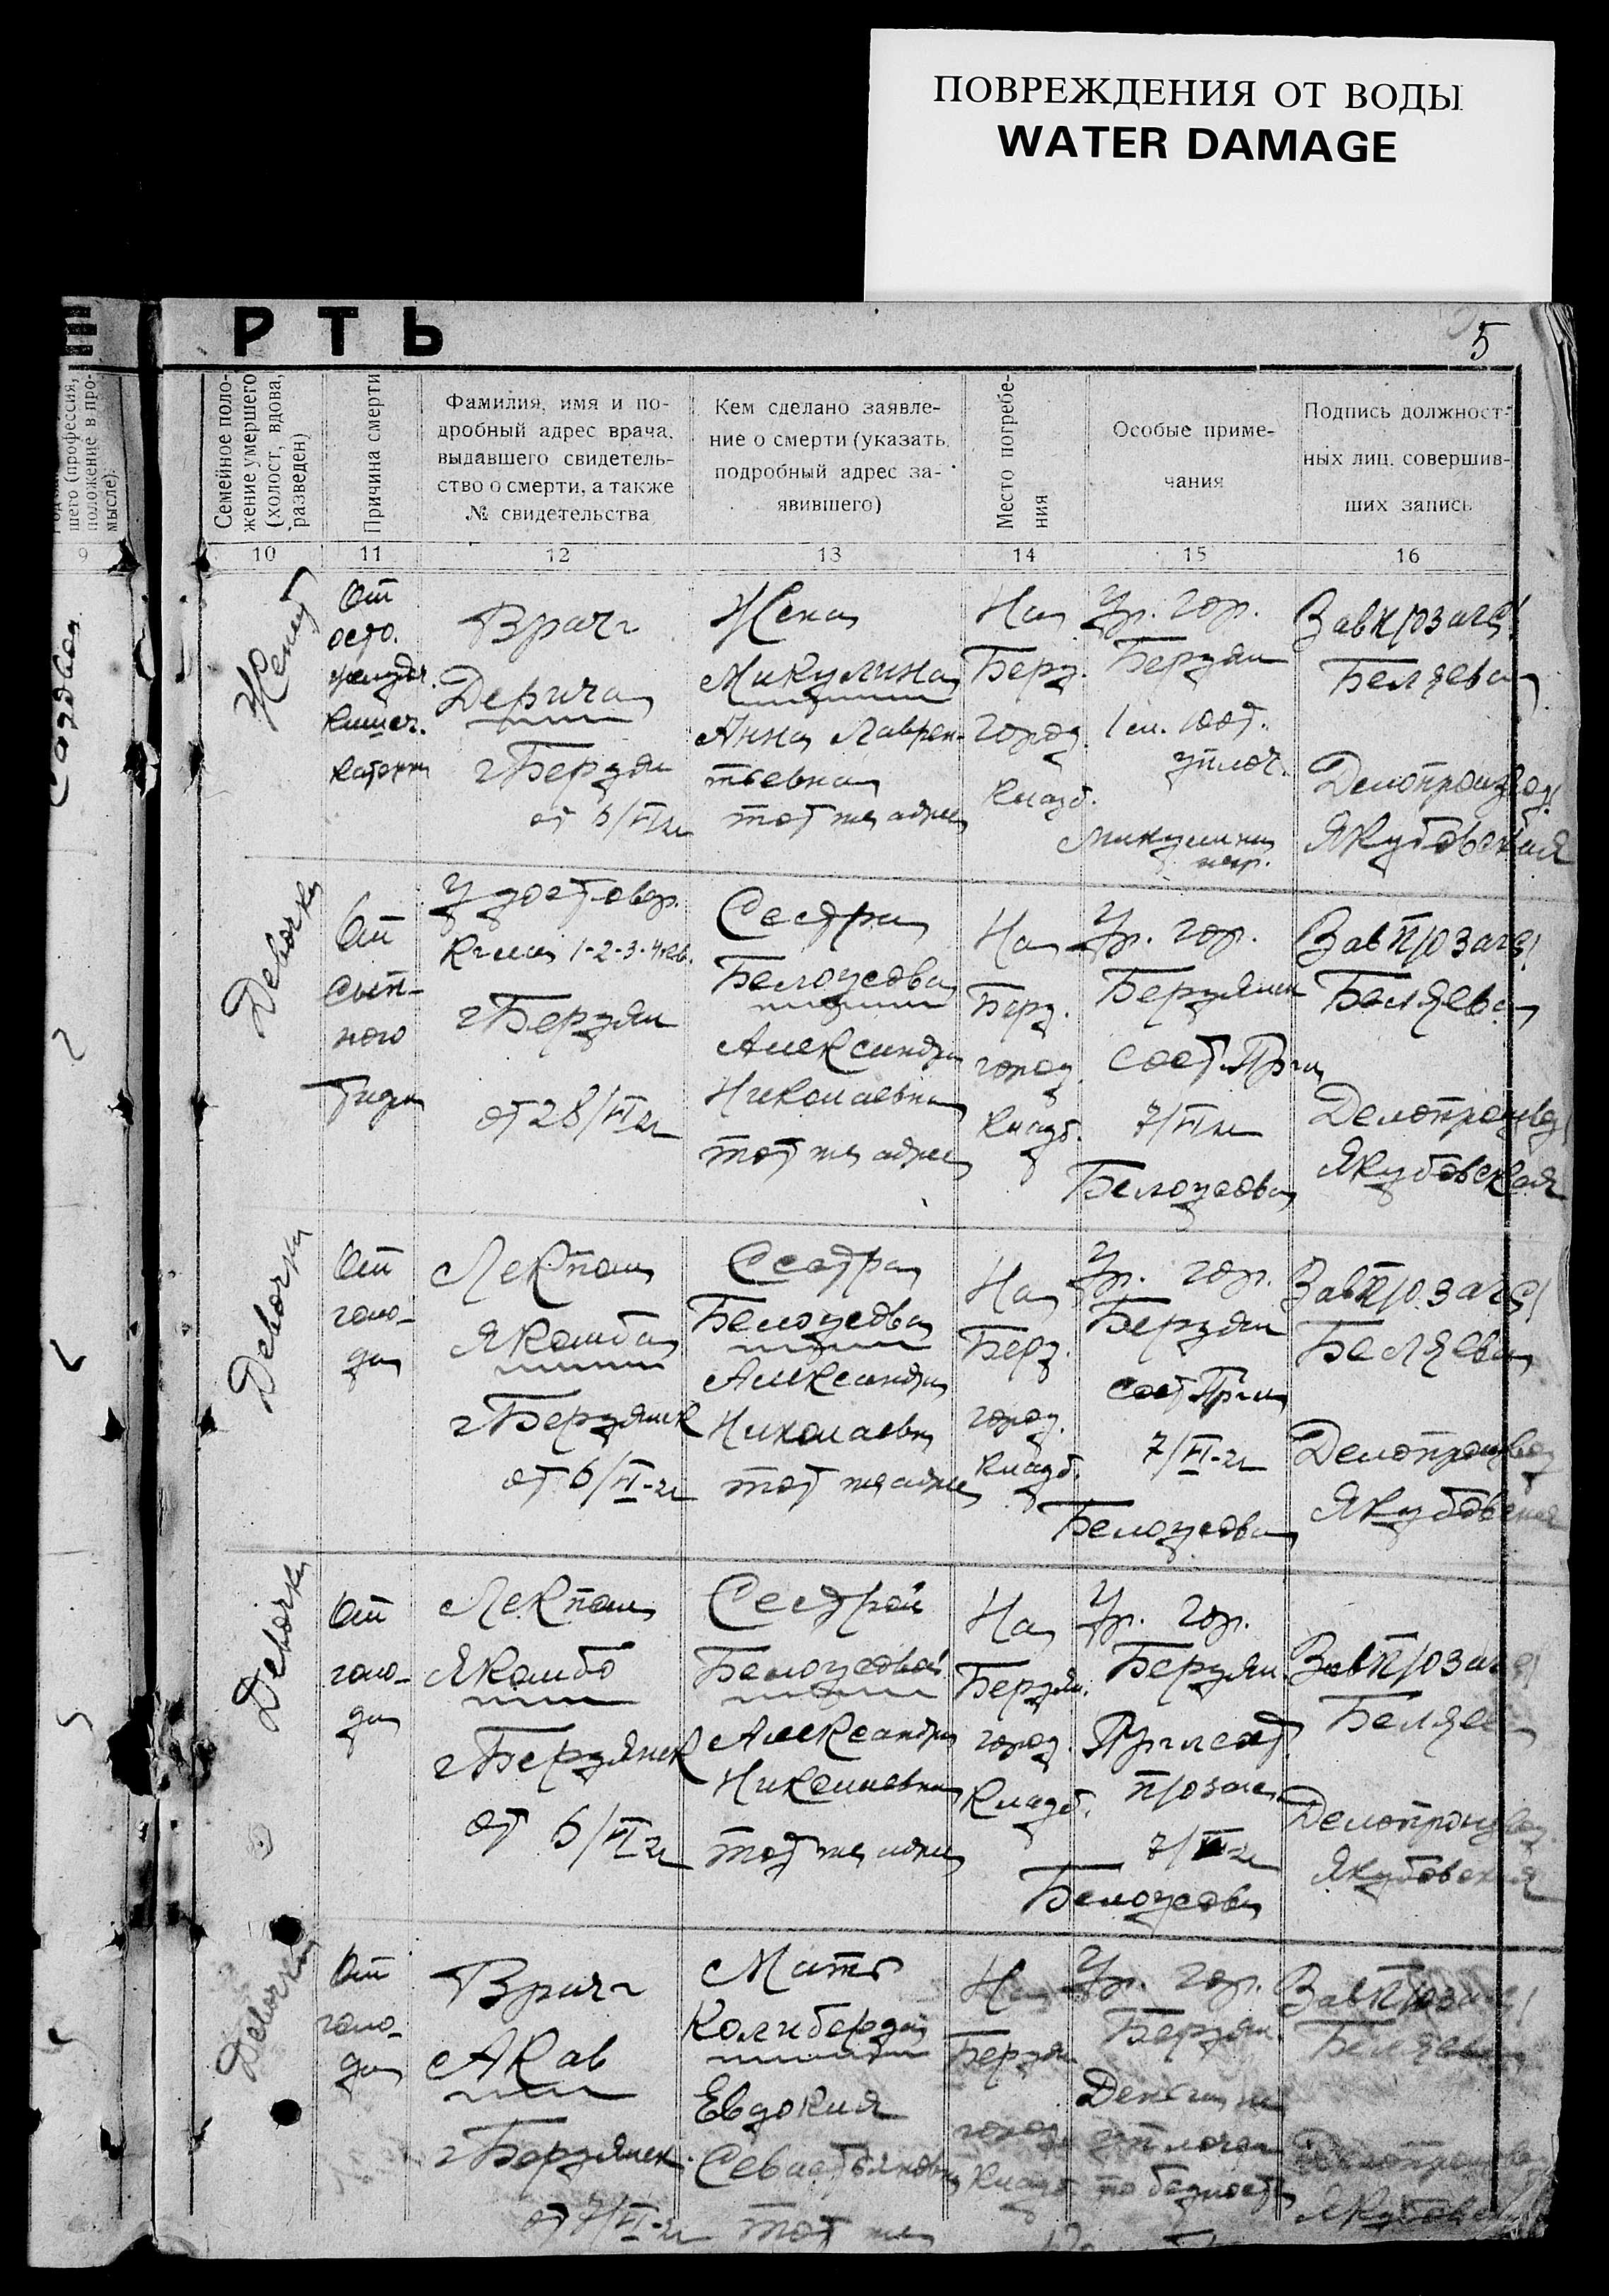 ПОВРЕЖДЕНИЯ ОТ ВОДЫ
WATER DAMAGE
Е РТЬ
5
шего (профессия,
положение в про-
мысле).
Семейное поло-
жение умершего
(холост, вдова,
разведен)
Причина смерти
Фамилия, имя и по-
дробный адрес врача,
выдавшего свидетель-
ство о смерти, а также
№ свидетельства
Кем сделано заявле-
ние о смерти (указать
подробный адрес за-
явившего)
Место погребе-
ния
Особые приме-
чания
Подпись должност-
ных лиц, совершив-
ших запись
9
10
11
12
13
14
15
16
Женат
От
остр.
желудоч.
кишеч.
Врач
Дерича
г Бердян
от 6/VI 21
Жена
Микулина
Анна Лаврен-
тьевна
тот же адрес
На
Берд.
город.
кладб.
Гр. гор.
Бердян
уплоч.
Микулина
негр.
Завпрозагс
Беляева
Делопроизвод
Якубовская
Девочка
От
сып-
ного
тифа
Удостовер.
1-2-3-4 кв.
г Бердян
от 28/VI 21
Сестра
Белоусова
Александра
Николаевна
тот же адрес
На
Берд.
город.
кладб.
Гр. гор.
Бердянск
7/VI 21
Белоусова
Завпрозагс
Беляева
Делопроизвод
Якубовская
Девочка
От
голо-
да
Лекпом
Якомба
г Бердянск
от 6/VI-21
Сестра
Белоусова
Александра
Николаевна
тот же адрес
На
Берд.
город.
кладб.
Гр. гор.
Бердян
7/VI-21
Белоусова
Завпрозагс
Беляева
Делопроизвод
Якубовская
Девочка
От
голо-
да
Лекпом
Якомбо
г Бердянск
от 6/VI 21
Сестрой
Белоусовой
Александра
Николаевна
тот же адрес
На
Бердян.
город.
кладб.
Гр. гор.
Бердян.
Белоусова
Завпрозагс
Беляева
Делопроизвод.
Якубовская
Девочка
От
голо-
да
Врач
Акав
г Бердянск
от 7/VI-21
Мать
Колиберда
Евдокия
Севастьяновна
тот же
На
Бердян
город
кладб
Гр. гор.
Бердян.
Деньги не
уплочен
по бедности
Завпрозагс
Беляева
Делопроизвод
Якубовск